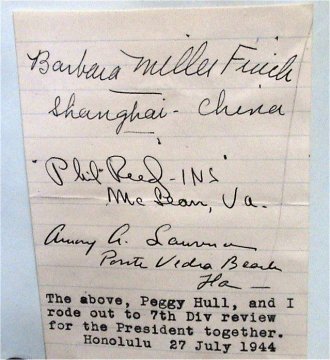 Barbara Miller Finch
Shanghai - China
"Phil" Reed - INS
McLean, Va.
A. Lawrence
Ponte Vedra Beach
Fla —
The above, Peggy Hull, and I
rode out to 7th Div review
for the President together.
Honolulu 27 July 1944